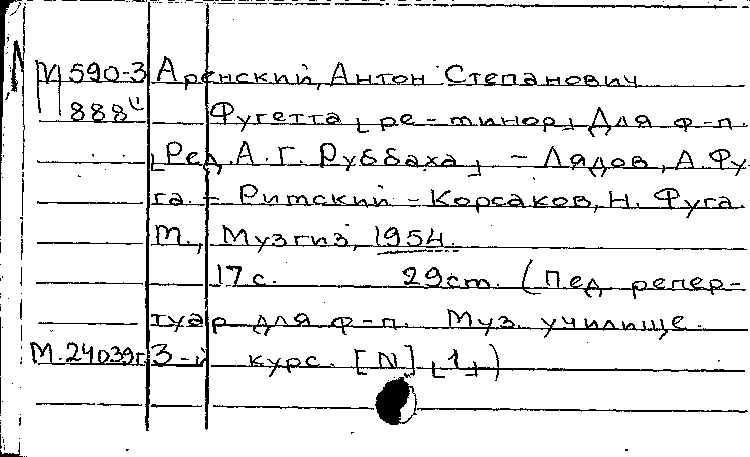 М590-3 Аренский, Антон Степанович
888 Фугетта [ре-минор] Для ф-п.
[Ред. А. Г. Руббаха] - Лядов, А. Фу
га. - Римский-Корсаков, Н. Фуга.
М., Музгиз, 1954.
17 с. 29 cm. (Пед. репер-
туар для ф-п. Муз. училище.
М.24039г. 3-й курс. [N] [1])